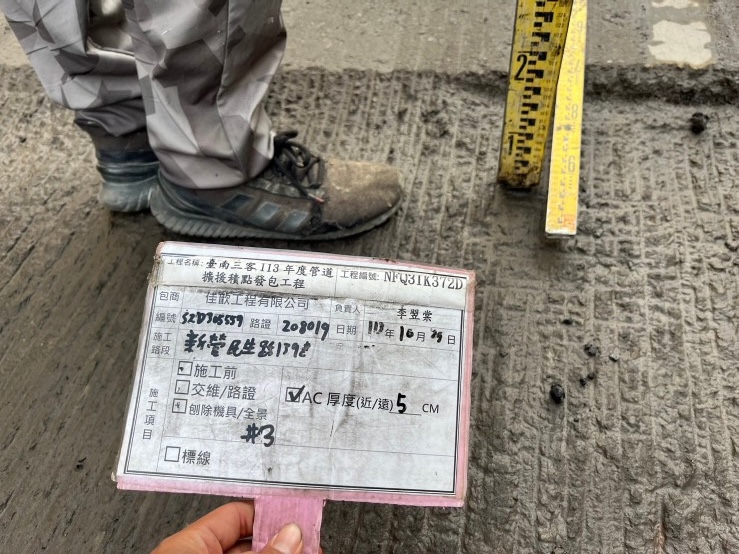 工程名稱: 臺南三客113年度管道擴後積點發包工程 工程編號: NFQ31K372D
包商 佳歆工程有限公司 負責人 李翌棠
編號 路證 208019 日期 113年10月29日
施工路段 新營民生路139號
施工項目
施工前
交維/路證
刨除機具/全景
#3
☑AC 厚度(近/遠) 5 CM
標線
2
1